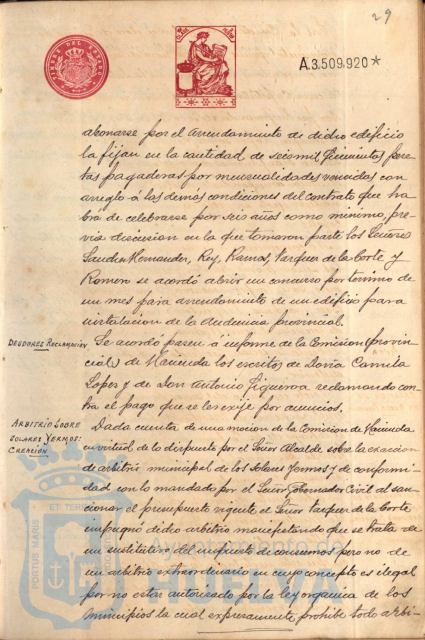 29
TIMBRE DEL ESTADO
A.3.509.920*
abonarse por el arrendamiento de dicho edificio
la fijan en la cantidad de seis mil quinientas pese
tas pagaderas por mensualidades vencidas con
arreglo á las demás condiciones del contrato que ha
bra de celebrarse por seis años como minimo, pre
via discusion en la que tomaron parte los Señores
Hernandez, Rey, Ramos, Vazquez de la Corte y
Romero se acordó abrir un concurso por termino de
un mes para arrendamiento de un edificio para
instalacion de la Audiencia provincial.
DEUDORES RECLAMACIÓN
Se acordó pasen a informe de la Comision (provin
cial) de Hacienda los escritos de Doña Camila
Lopez y de Don Antonio Figueroa reclamando con
tra el pago que se les exije por anuncios.
ARBITRIO SOBRE
SOLARES YERMOS:
CREACIÓN
Dada cuenta de una mocion de la Comision de Hacienda
en virtud de lo dispuesto por el Señor Alcalde sobre la creacion
de arbitrio municipal de los Solares Yermos y de conformi
dad con lo mandado por el Señor Gobernador Civil al san
cionar el presupuesto vigente el Señor Vazquez de la Corte
impugnó dicho arbitrio manifestando que se trata de
un sustitutivo del impuesto de consumos pero no de
un arbitrio extraordinario en cuyo concepto es ilegal
por no estar autorizado por la ley organica de los
Municipios la cual expresamente prohibe todo arbi-
PORTUS MARIS
ET TERRE
Ayuntamiento de